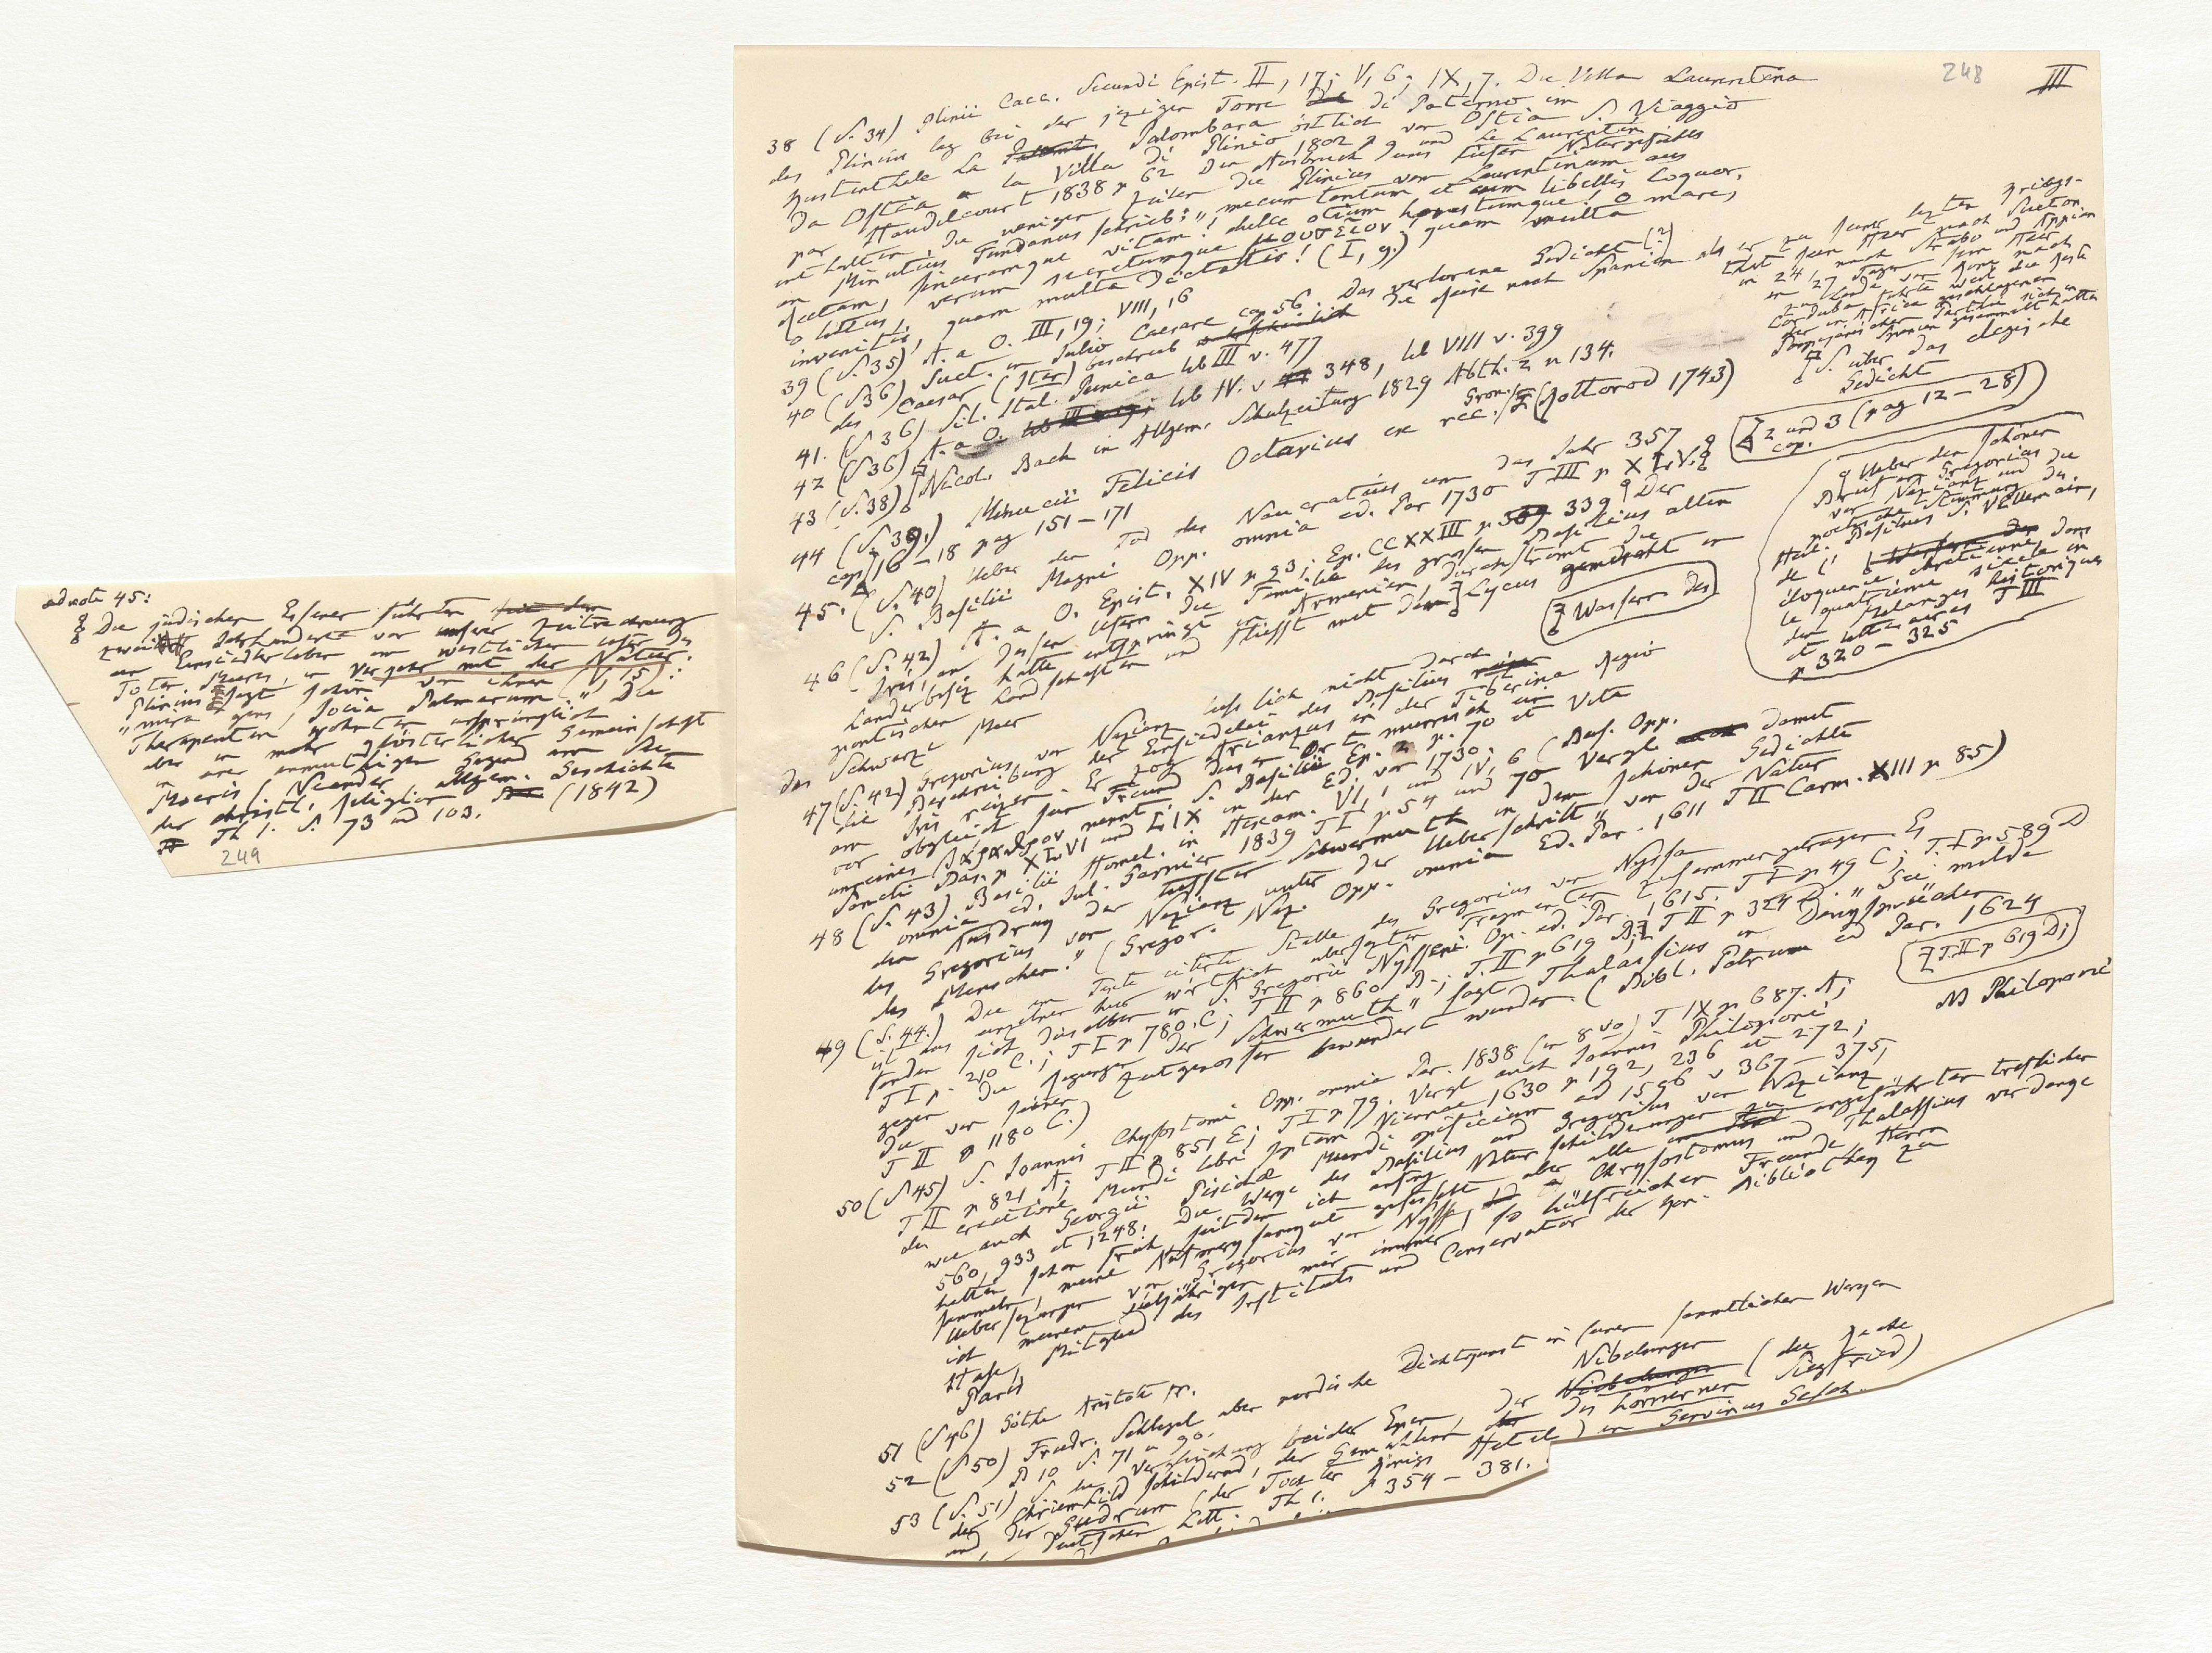 248
III
38 (S. 34) Plinii Caec. Secundi Epist. II, 17; V, 6; IX, 7. Die Villa Laurentina
des Plinius lag bei der jezigen Torre di Paterno im
Küstenthale la Palombara östlich von Ostia S. Viaggio
da Ostia a la Villa di Plinio 1802 p 9 und Le Laurentin
par Haudelcourt 1838 p 62 Den Ausbruch eines tiefen Naturgefühls
enthalten die wenigen Zeilen die Plinius vom Laurentinum aus
an Minutius Fundanus schrieb: "mecum tantum et cum libellis loquor.
Rectam, sinceramque vitam! dulce otium honestumque! O mare,
o littus, verum secretumque μουσεῖον! quam multa
invenitis, quam multa dictatis! (I, 9.)
39 (S. 35) A. a O. III, 19; VIII, 16
40 (S 36) Suet. in Julio Caesare cap 56. Das verlorene Gedicht (?)
des Caesar (Iter) beschrieb die Reise nach Spanien als er zu seiner lezten Kriegs-
that sein Heer nach Sueton
in 24, nach Strabo und Appian
in 27 Tagen sein Heer
zu Lande von Rom nach
Corduba führte weil die Reste
der in Africa geschlagenen
Pompejanischen Parthei sich in
Spanien gesammelt hatten
41. (S 36) Sil. Ital. Punica lib III v. 477
42 (S 36) A. a O. lib IV. v 348, lib VIII v. 399
43 (S. 38) Nicol. Bach in Allgem. Schulzeitung 1829 Abth. 2 n 134.
S. über das elegische
Gedicht
44 (S 39.) Minucii Felicis Octavius ex rec. Gron. (Rotterod 1743)
cap. 2 und 3 (pag 12–28)
cap 16–18 pag 151–171
45. (S 40) Ueber den Tod des Naucratius um das Jahr 357
S. Basilii Magni Opp. omnia ed. Par 1730 T III p XLV.
Ueber den schönen
Brief an Gregorius
von Nazianz und die
poetische Stimmung des
Heil. Basilius S. Villemain,
de l'
éloquence chrétienne dans
le quatrième siècle in
den Melanges historiques
et litteraires T III
p 320–325
46 (S. 42) A. a O. Epist. XIV p 93; Ep. CCXXIII p 339 Der
Iris, an dessen Ufern die Familie des grossen Basilius alten
Länderbesiz hatte entspringt in Armenien, durchströmt die
pontischen Landschaften und fliesst mit den Lycus gemischt in
Wassern des
das Schwarze Meer
47 (S. 42) Gregorius von Nazianz liess sich nicht durch
die Beschreibung der Einsiedelei des Basilius
am Iris reizen. Er zog Arianzus in der Tiberina Regio
vor obgleich sein Freund diesen Ort murrisch ein
unreines βάραθρον nennt. S. Basilii Ep. 2 p. 70 et Vita
Sancti Bas. p XLVI und LIX in der Ed. von 1730.
48 (S. 43) Basilii Homel. in Hexaem. VI, 1 und IV, 6 (Bas. Opp.
omnia ed. Jul. Garnier 1839 T I p 54 und 70 Vergl damit
den Ausdruck der tiefsten Schwermuth in dem schönen Gedichte
des Gregorius von Nazianz unter der Ueberschrift "von der Natur
des Menschen." (Gregor. Naz. Opp. omnia Ed. Par. 1611 T II Carm. XIII p 85)
49 (S. 44.) Die im Texte citirte Stelle des Gregorius von Nyssa
ist aus einzelnen hier wörtlich übersezten Fragmenten zusammengetragen Es
finden sich dieselben in S. Gregorii Nysseni Op. ed. Par. 1615. T I p 49 C; T. I p 589 D
T I p. 210 C.; T I p 780. C; T II p 860 B.; T. II p 619 B; T II p 324 D. "Sei milde
T. II p 619 D;
gegen die Regungen der Schwermuth" sagt Thalassius in Denksprüchen
die von seinen Zeitgenossen bewundert wurden. (Bibl. Patrum ed Par. 1624
T II p 1180 C.)
50 (S 45) S. Ioannis Chysostomi Opp. omnia Par. 1838 (in 8vo) T IX p 687. A;
T II p 821 A; T II p 851 E; T I p 79. Vergl auch Joannis Philoponi
NB Philoponi
de creatione Mundi libri septem Viennae 1630 p 192, 236 et 272;
wie auch Georgii Pisidae Mundi opificium ed 1596 v 367–375,
560, 933 et 1248. Die Werke des Basilius und Gregorius von Nazianz
hatten schon früh, seitdem ich anfing Naturschilderungen zu
sammeln, meine Aufmerksamkeit gefesselt aber alle angeführten treflichen
Uebersezungen von Gregorius von Nyssa, Chrysostomus und Thalassius verdanke
ich meinem vieljährigen mir immer so hülfreichen Freunde, Herrn
Hase, Mitglied des Instituts und Conservator der Kön. Bibliothek zu
Paris
51 (S 46) Göthe
52 (S 50) Friedr. Schlegel über nordische Dichtkunst in seinen sämmtlichen Werken
B 10 S. 71 u 90.
53 (S. 51) S. die Vergleichung beider Epen, der Nibelungen (die Rache
der Chriemhild schildernd, der Gemahlinn des hörnernen Siegfried)
und der Gudrun (der Tochter Königs Hetel) in Gervinus Gesch.
Deutschen Litt. Th 1. S 354–381.
ad note 45:
Die jüdischen Essener führten
zwei Jahrhunderte vor unserer Zeitrechnung
ein Einsiedlerleben am westlichen Ufer des
Toten Meers, in Verkehr mit der Natur.
Plinius sagt schön von ihnen (V, 15):
"mira gens, socia palmarum". Die
Therapeuten wohnten ursprünglich
aber in mehr klösterlicher Gemeinschaft
in einer anmuthigen Gegend am See
Moeris (Neander allgem. Geschichte
der christl. Religion (1842)
Th 1. S. 73 und 103.
249